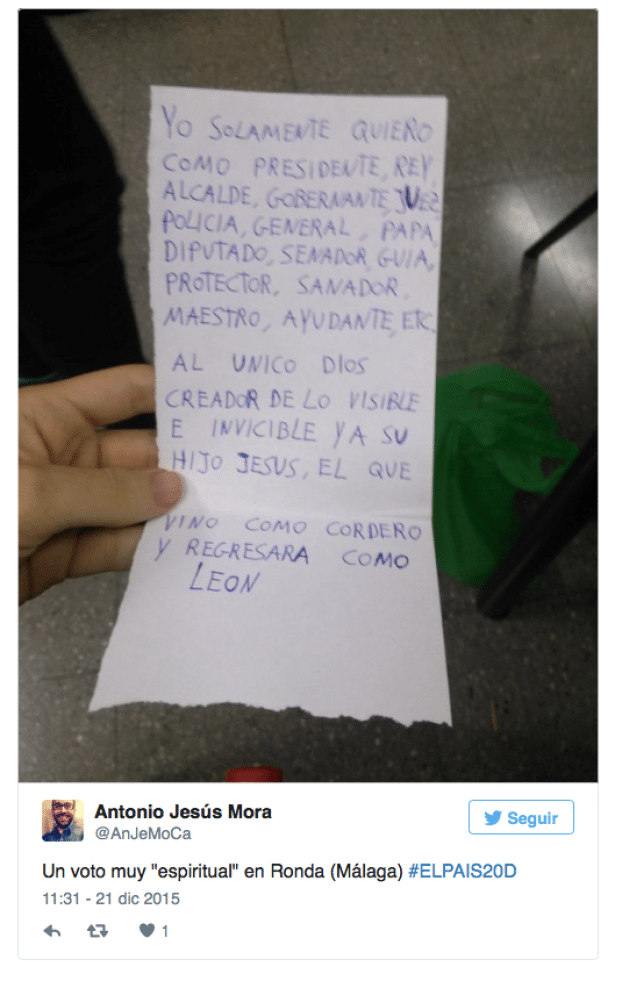 YO SOLAMENTE QUIERO
COMO PRESIDENTE, REY,
ALCALDE, GOBERNANTE, JUEZ
POLICIA, GENERAL, PAPA,
DIPUTADO, SENADOR, GUIA,
PROTECTOR, SANADOR,
MAESTRO, AYUDANTE, ETC.
AL UNICO DIOS
CREADOR DE LO VISIBLE
E INVICIBLE Y A SU
HIJO JESUS, EL QUE
VINO COMO CORDERO
Y REGRESARA COMO
LEON
Antonio Jesús Mora
@AnJeMoCa
Seguir
Un voto muy "espiritual" en Ronda (Málaga) #ELPAIS20D
11:31 - 21 dic 2015
1